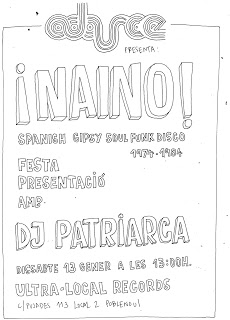 adarce
PRESENTA:
¡NAINO!
SPANISH GIPSY SOUL FUNK DISCO
1974-1984
FESTA
PRESENTACIÓ
AMB
DJ PATRIARCA
DISSABTE 13 GENER A LES 13:00H.
ULTRA-LOCAL RECORDS
C/PUJADES 113 LOCAL 2 POBLENOU